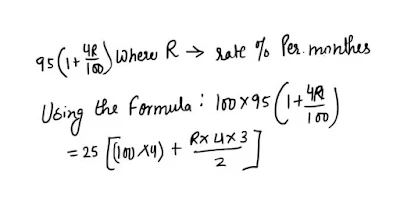 95(1+4R/100) Where R → rate % Per. monthes
Using the Formula : 100×95(1+4R/100)
=25 [(100×4) + R×4×3/2]